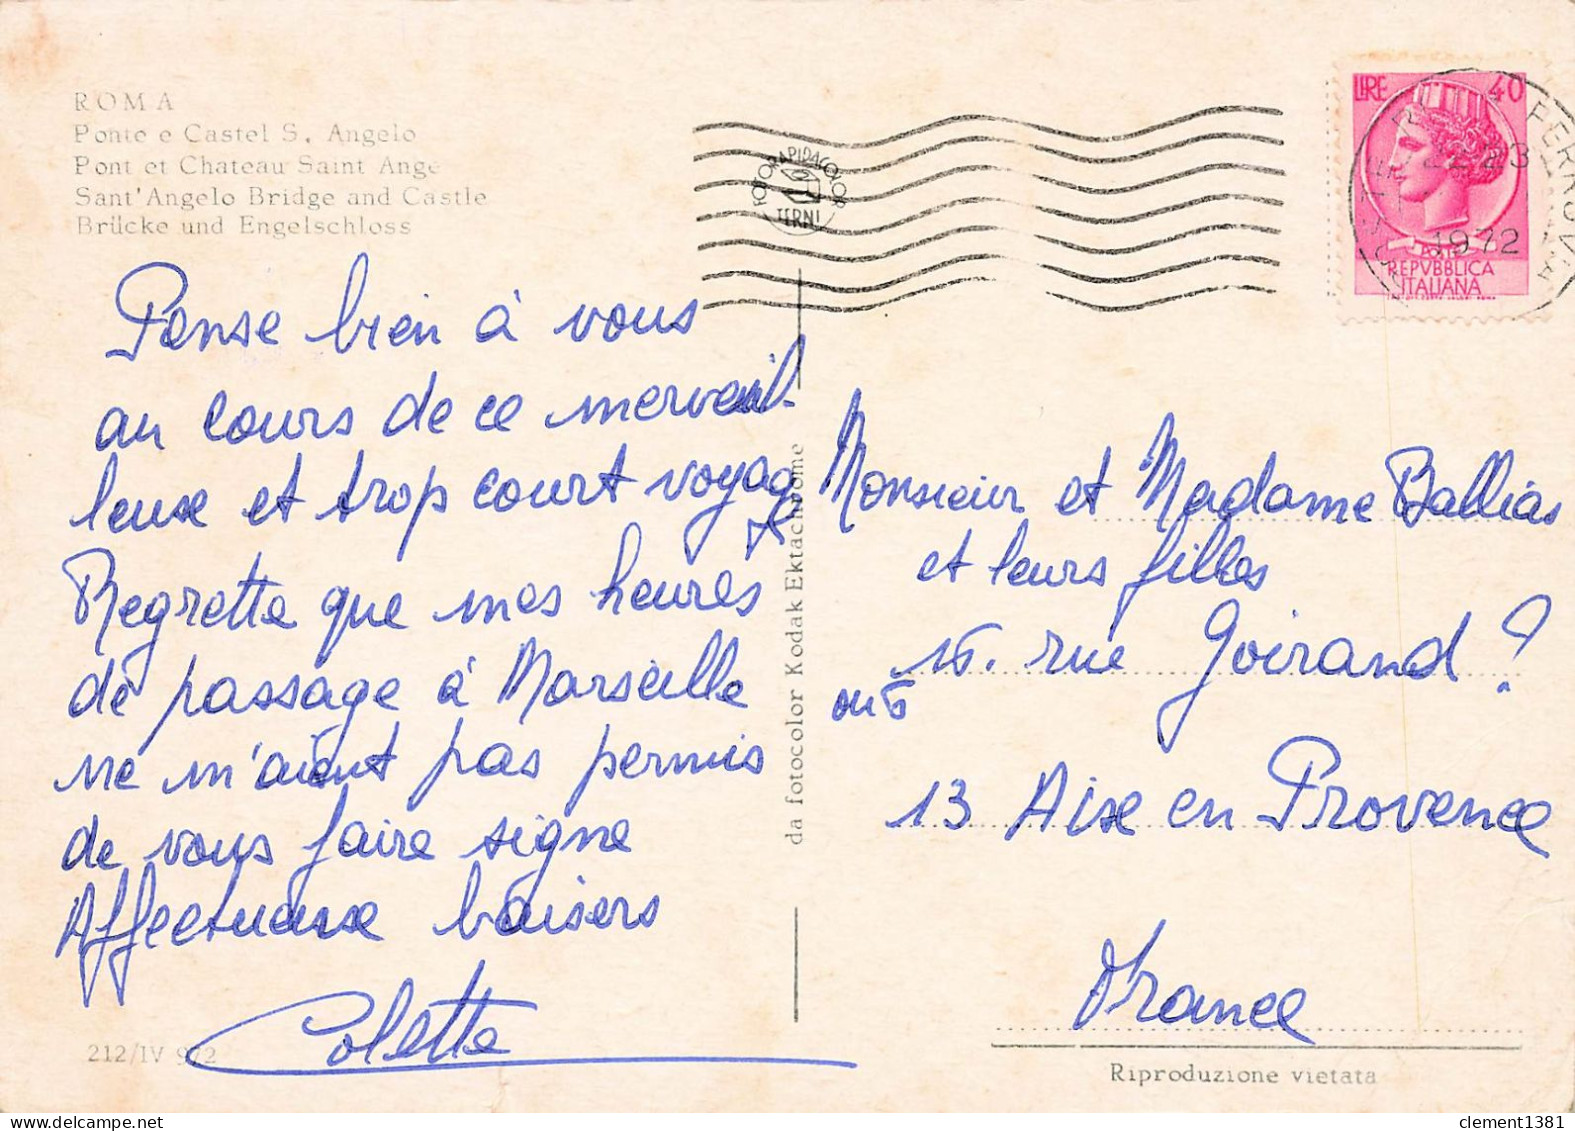 ROMA
Ponte e Castel S. Angelo
Pont et Chateau Saint Ange
Sant'Angelo Bridge and Castle
Brücke und Engelschloss
Pense bien à vous
au cours de ce merveil-
leuse et trop court voyage
Regrette que mes heures
de passage à Marseille
ne m'aient pas permis
de vous faire signe
Affectueuse baisers
Colette
212/IV 972
FOTORAPIDACOLOR
TERNI
da fotocolor Kodak Ektachrome
LIRE 40
POSTE
REPVBBLICA
ITALIANA
23
1972
FERROVIA
Monsieur et Madame Ballias
et leurs filles
15. rue Goirand ?
ou 5
13 Aixe en Provence
France
Riproduzione vietata
clement1381